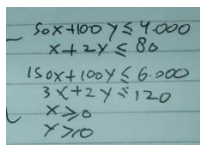 50x+100y≤4.000
x+2y≤80
150x+100y≤6.000
3x+2y≤120
x≥0
y≥0